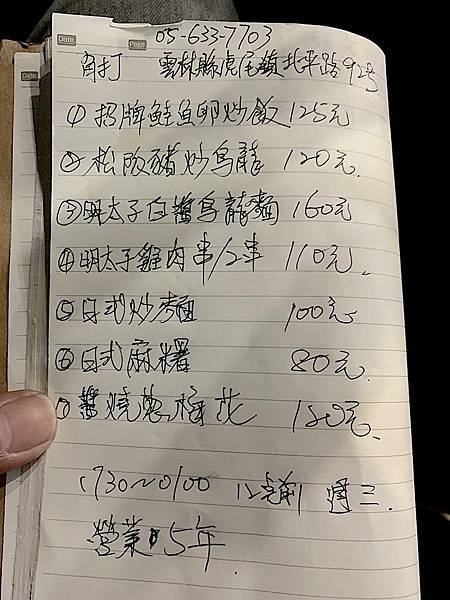 Date
Page
05-633-7703
Date
角打 雲林縣虎尾鎮北平路92号
① 招牌鮭魚卵炒飯 125元
② 松阪豬炒烏龍 120元
③ 明太子白醬烏龍麵 160元
④ 明太子雞肉串/2串 110元
⑤ 日式炒麵 100元
⑥ 日式麻糬 80元
⑦ 醬燒蔥梅花 120元
1730~0100 12 週三
營業 5年